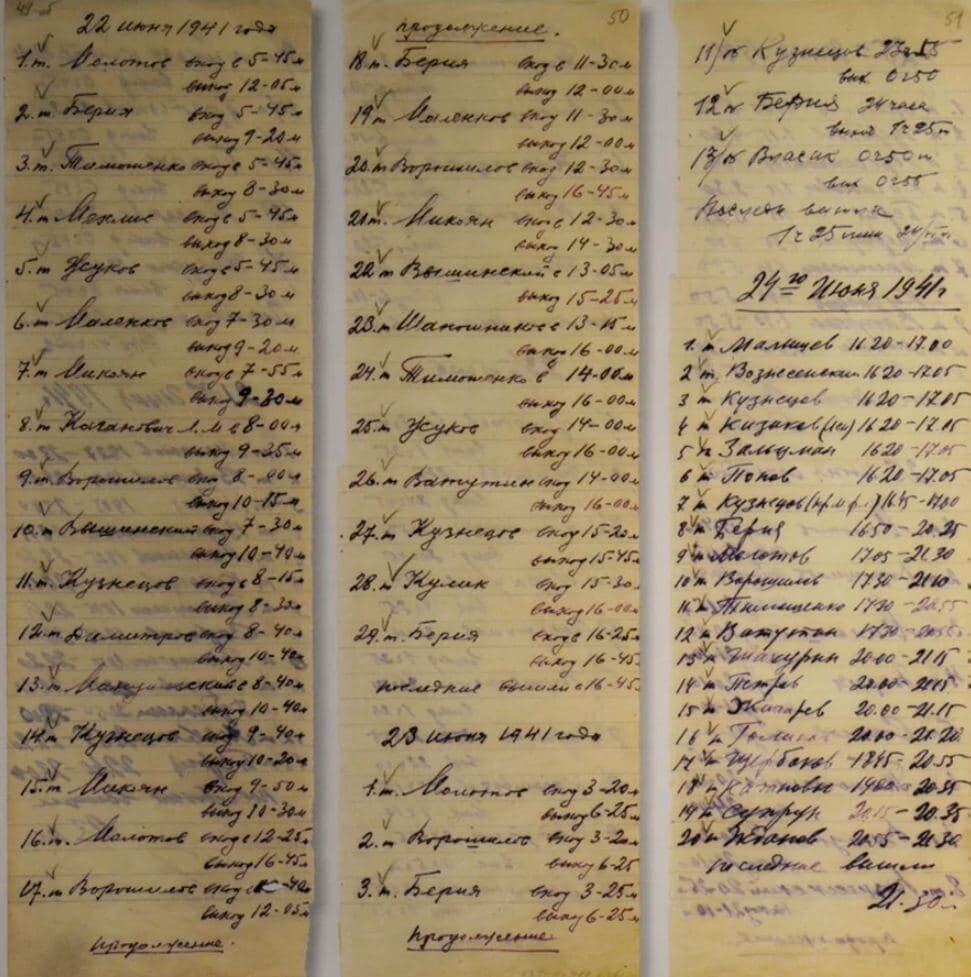 22 июня 1941 года
1. т. Молотов вход в 5-45м
выход 12-05м
2. т. Берия вход 5-45м
выход 9-20м
3. т. Тимошенко вход в 5-45м
выход 8-30м
4. т. Мехлис вход в 5-45м
выход 8-30м
5. т. Жуков вход в 5-45м
выход 8-30м
6. т. Маленков вход 7-30м
выход 9-20м
7. т. Микоян вход в 7-55м
выход 9-30м
8. т. Каганович Л.М в 8-00м
выход 9-35м
9. т. Ворошилов вход 8-00м
выход 10-15м
10. т. Вышинский вход 7-30м
выход 10-40м
11. т. Кузнецов вход в 8-15м
выход 8-30м
12. т. Димитров вход 8-40м
выход 10-40м
13. т. Мануильский в 8-40м
выход 10-40м
14. т. Кузнецов вход 9-40м
выход 10-20м
15. т. Микоян вход 9-50м
выход 10-30м
16. т. Молотов вход в 12-25м
выход 16-45м
17. т. Ворошилов вход в
выход 12-05м
продолжение.
50
продолжение.
18. т. Берия вход в 11-30м
выход 12-00м
19. т. Маленков вход 11-30м
выход 12-00м
20. т. Ворошилов вход 12-30м
выход 16-45м
21. т. Микоян вход в 12-30м
выход 14-30м
22. т. Вышинский в 13-05м
выход 15-25м
23. т. Шапошников в 13-15м
выход 16-00м
24. т. Тимошенко в 14-00м
выход 16-00м
25. т. Жуков вход 14-00м
выход 16-00м
26. т. Ватутин вход 14-00м
выход 16-00м
27. т. Кузнецов вход 15-20м
выход 15-45м
28. т. Кулик вход 15-30м
выход 16-00м
29. т. Берия вход в 16-25м
выход 16-45
последние вышли в 16-45
23 июня 1941 года
1. т. Молотов вход 3-20м
выход 6-25м
2. т. Ворошилов вход 3-20м
выход 6-25
3. т. Берия вход 3-25м
выход 6-25м
продолжение
51
11/ Кузнецов
вых 0 50
12 Берия 24 часа
вышел 1ч 25м
13/ Власик 0 50м
вых 0 55
вышли
1ч 25 мин 24/
24го Июня 1941г
1. т Малышев 16 20-17.00
2 т. Вознесенский 16 20-17.05
3 т Кузнецов 16 20-17.05
4 т Кизаков 16 20-17.05
5 т Зальцман 16 20-17.05
6 т Попов 16 20-17.05
7 т Кузнецов 16 45-17.00
8 т Берия 16 50-20.25
9 т Молотов 17.05-21.30
10 т Ворошилов 17.30-
11 т Тимошенко 17.30-20.55
12 т Ватутин 17.30-20.55
13 т Шахурин 20.00-21.15
14 т Петров 20.00-21.15
15 т Жигарев 20.00-21.15
16 т Голиков 20.00-21.20
17 т Щербаков 18 45-20.55
18 т Каганович 20.35
19 т Супрун 20.15-20.35
20 т Жданов 20.55-21.30
последние вышли
21.30м